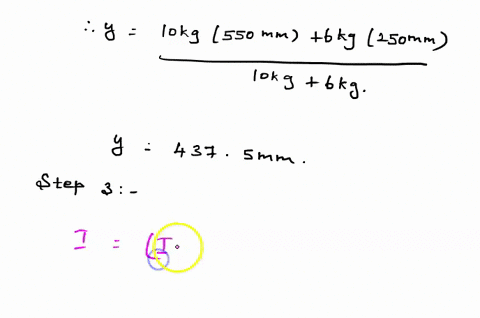 ∴ y = 10kg (550 mm) + 6kg (250mm)
10kg + 6kg.
y = 437.5mm.
Step 3:-
I = (I